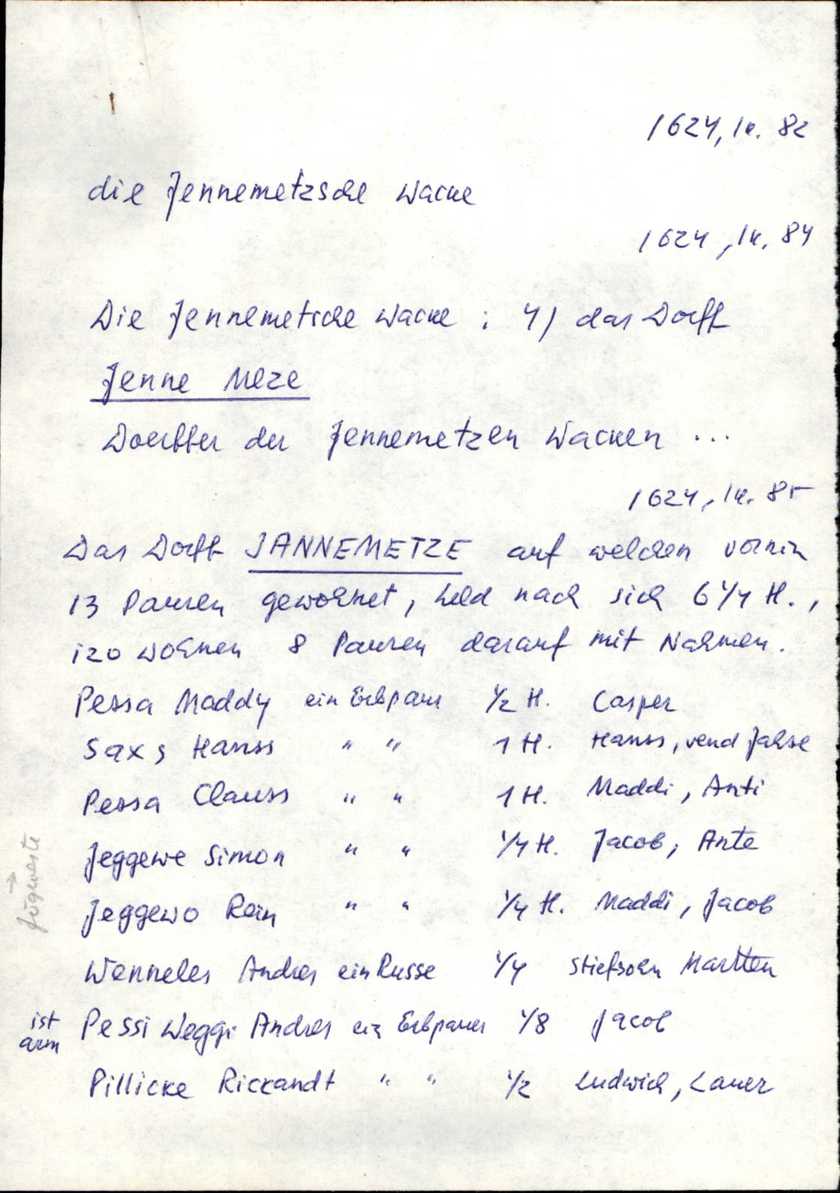 1624, lk. 82
die Jennemetzsche Wacke
1624, lk. 84
Die Jennemetsche Wacke : 4) das Dorff
Jenne Meze
Doerffer der Jennemetzen Wacken ...
1624, lk. 85
Das Dorff JANNEMETZE auf welchen vorhin
13 Pauren gewohnet, held nach sich 6 1/4 H.,
izo wohnen 8 Pauren darauf mit Nahmen.
Pessa Maddy ein Erbpaur 1/2 H. Casper
Saxs Hanss " " 1 H. Hanss, vend Jahse
Pessa Clauss " " 1 H. Maddi, Anti
Jeggewe Simon " " 1/4 H. Jacob, Ante
Jeggewo Rein " " 1/4 H. Maddi, Jacob
Wenneles Andres ein Russe 1/4 Stiefsohn Martten
ist arm Pessi Weggi Andres ein Erbpauer 1/8 Jacob
Pillicke Rickandt " " 1/2 Ludwich, Lauer